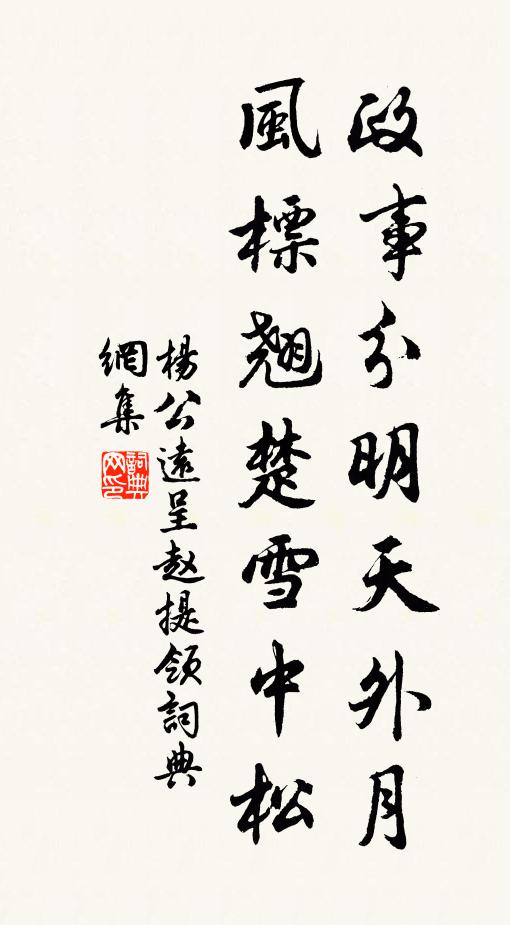 政事分明天外月
風標翹楚雪中松
楊公遠呈赵提領詞典
網集
詞典
网印